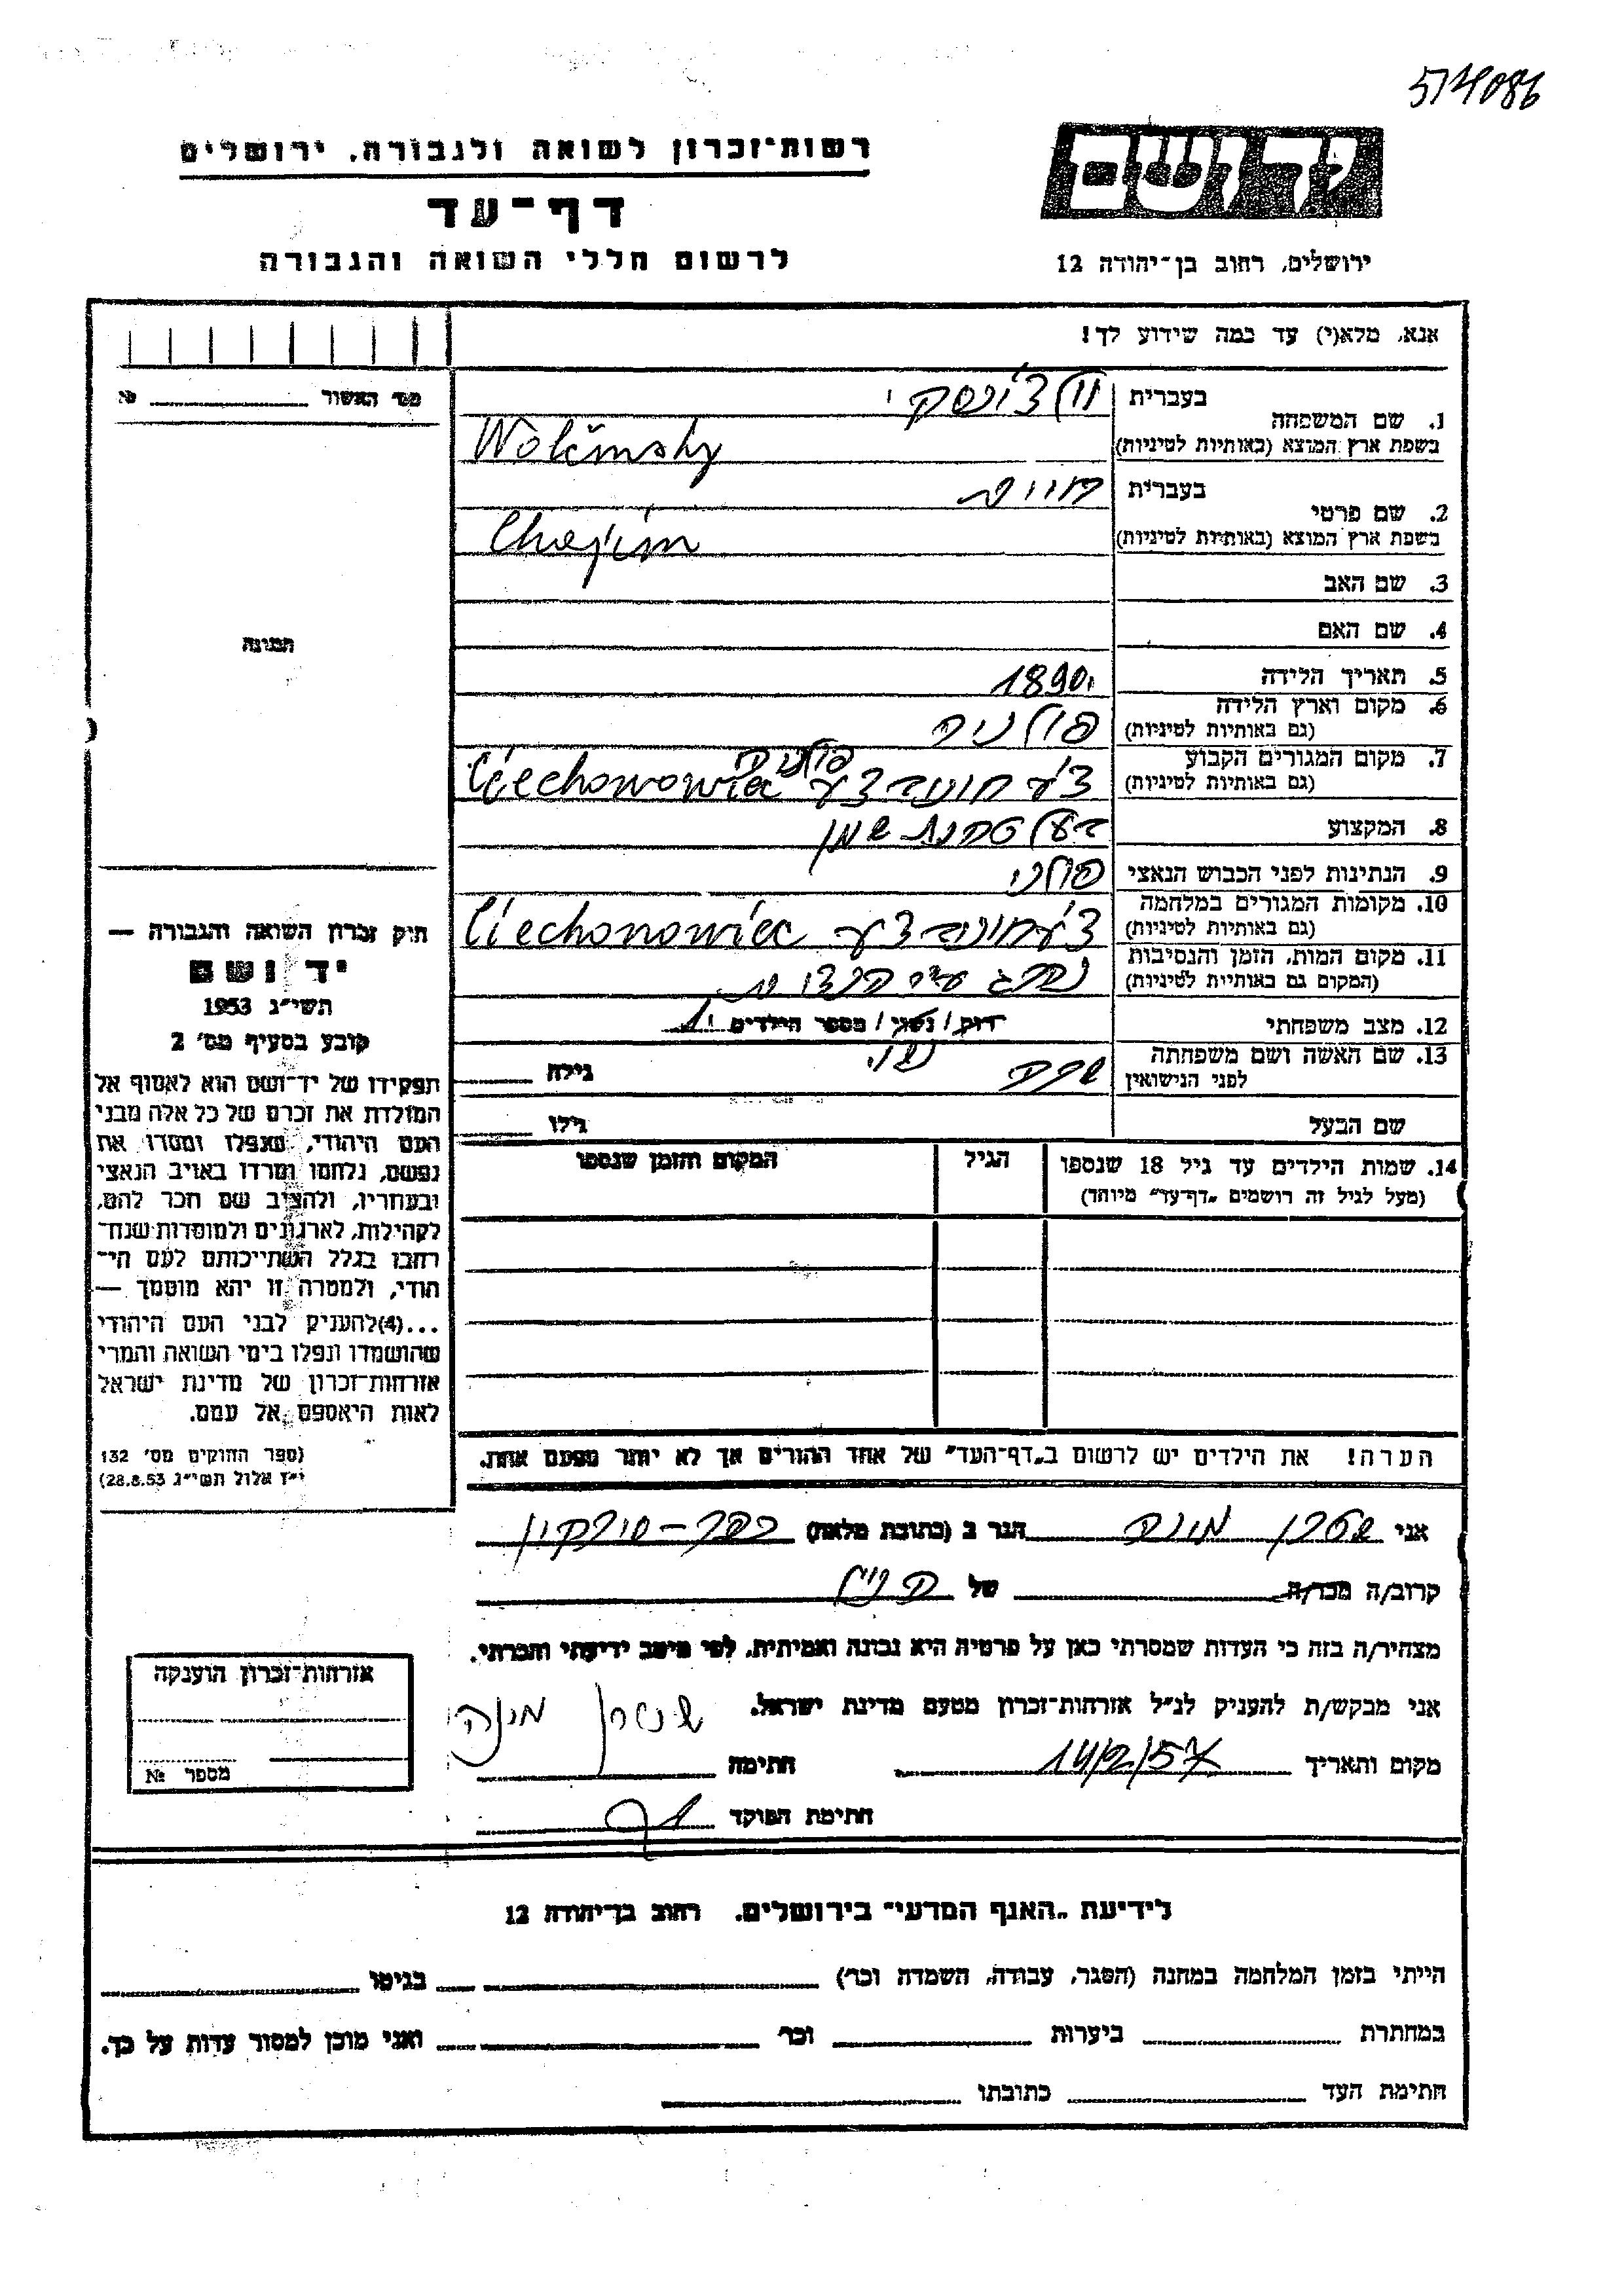 574086
יד ושם
רשות־זכרון לשואה ולגבורה, ירושלים
דף־עד
לרשום חללי השואה והגבורה
ירושלים, רחוב בן־יהודה 12
אנא, מלא(י) עד כמה שידוע לך!
1. שם המשפחה
בעברית
וולצ'ינסקי
בשפת ארץ המוצא (באותיות לטיניות)
Wolčinsky
2. שם פרטי
בעברית
חיים
בשפת ארץ המוצא (באותיות לטיניות)
Chajim
3. שם האב
4. שם האם
5. תאריך הלידה 1890
6. מקום וארץ הלידה
(גם באותיות לטיניות)
פולניה
7. מקום המגורים הקבוע
(גם באותיות לטיניות)
פולניה
Ciechonowiec
8. המקצוע בעל טחנת שמן
9. הנתינות לפני הכבוש הנאצי פולני
10. מקומות המגורים במלחמה
(גם באותיות לטיניות)
Ciechonowiec
11. מקום המות, הזמן והנסיבות
(המקום גם באותיות לטיניות)
נהרג ע"י הנצים
12. מצב משפחתי רוק / נשוי / מספר הילדים 1
נשוי
13. שם האשה ושם משפחתה
לפני הנישואין
שרה
גילה
שם הבעל גילו
14. שמות הילדים עד גיל 18 שנספו
(מעל לגיל זה רושמים "דף־עד" מיוחד)
הגיל
המקום והזמן שנספו
הערה! את הילדים יש לרשום ב"דף־העד" של אחד ההורים אך לא יותר מפעם אחת.
מס' האשור №
תמונה
חוק זכרון השואה והגבורה —
יד ושם
תשי"ג 1953
קובע בסעיף מס' 2
תפקידו של יד־ושם הוא לאסוף אל
המולדת את זכרם של כל אלה מבני
העם היהודי, שנפלו ומסרו את
נפשם, נלחמו ומרדו באויב הנאצי
ובעוזריו, ולהציב שם וזכר להם,
לקהילות, לארגונים ולמוסדות שנח־
רבו בגלל השתייכותם לעם הי־
הודי, ולמטרה זו יהא מוסמך —
...(4)להעניק לבני העם היהודי
שהושמדו ונפלו בימי השואה והמרי
אזרחות־זכרון של מדינת ישראל
לאות היאספם אל עמם.
(ספר החוקים מס' 132
י"ז אלול תשי"ג 28.8.53)
אני מונה הגר ב (כתובת מלאה) כפר-סירקין
קרוב/ה מכר/ה של
מצהיר/ה בזה כי העדות שמסרתי כאן על פרטיה היא נכונה ואמיתית, לפי מיטב ידיעתי והכרתי.
אני מבקש/ת להעניק לנ"ל אזרחות־זכרון מטעם מדינת ישראל.
מקום ותאריך 14/2/57 חתימה מונה
חתימת הפוקד
אזרחות־זכרון הוענקה
מספר №
לידיעת "האגף המדעי" בירושלים, רחוב בן־יהודה 12
הייתי בזמן המלחמה במחנה (הסגר, עבודה, השמדה וכו') בגיטו
במחתרת ביערות וכו' ואני מוכן למסור עדות על כך.
חתימת העד כתובתו